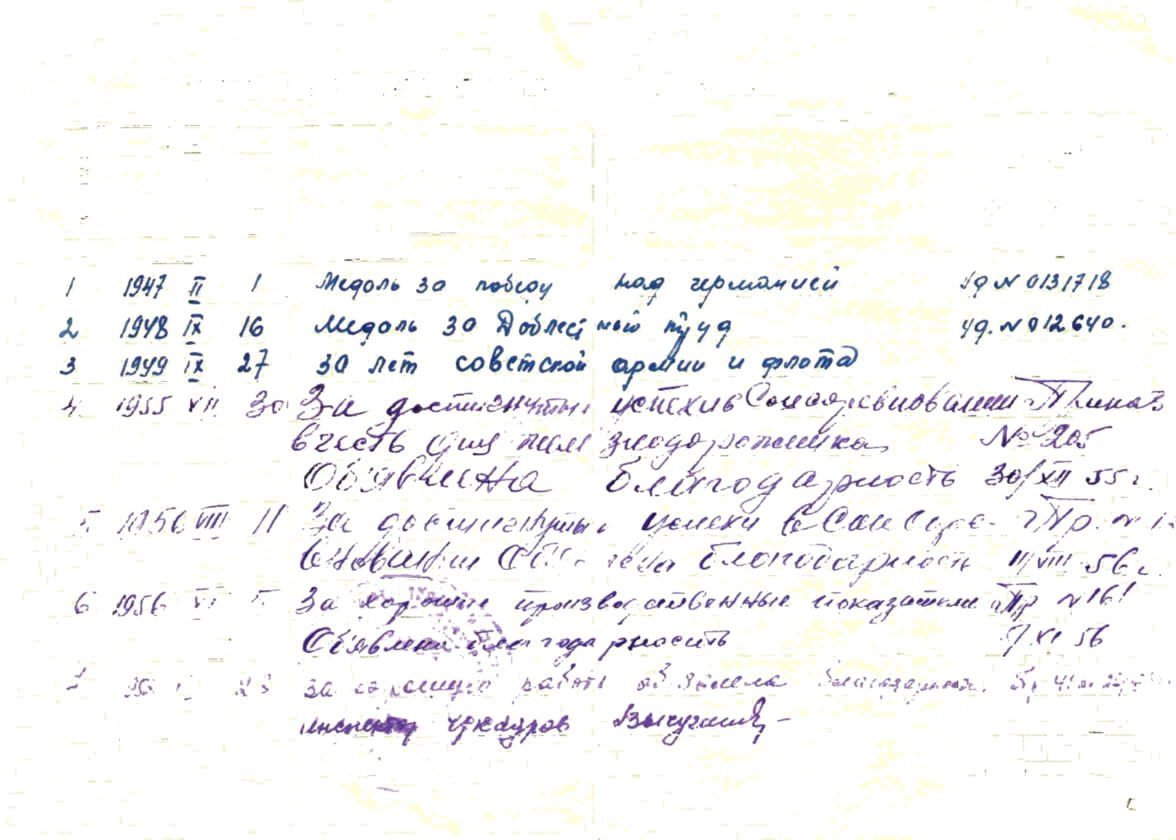 1 1947 II 1 Медаль за победу над германией уд N 0131718
2 1948 IX 16 Медаль за Доблестный труд уд. N 012640.
3 1949 IX 27 30 лет советской армии и флота
4 1955 VII 30 За достигнутые успехи в Соцсоревновании Приказ
в честь дня железнодорожника № 205
Объявлена благодарность 30/XII 55 г.
1956 VIII 11 За достигнутые успехи в Соцсоре- Пр. N
благодарность 11 VIII 56 г.
6 1956 За хорошие производственные показатели Пр N 161
Объявлена благодарность 7 XI 56
23 за хорошую работу объявлена благодарность. Пр
инспектор